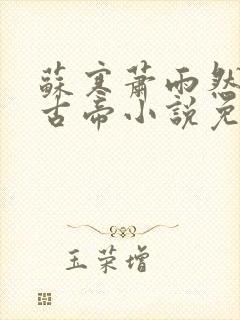 蘇寒蕭雨然
古帝小說免
玉荣增